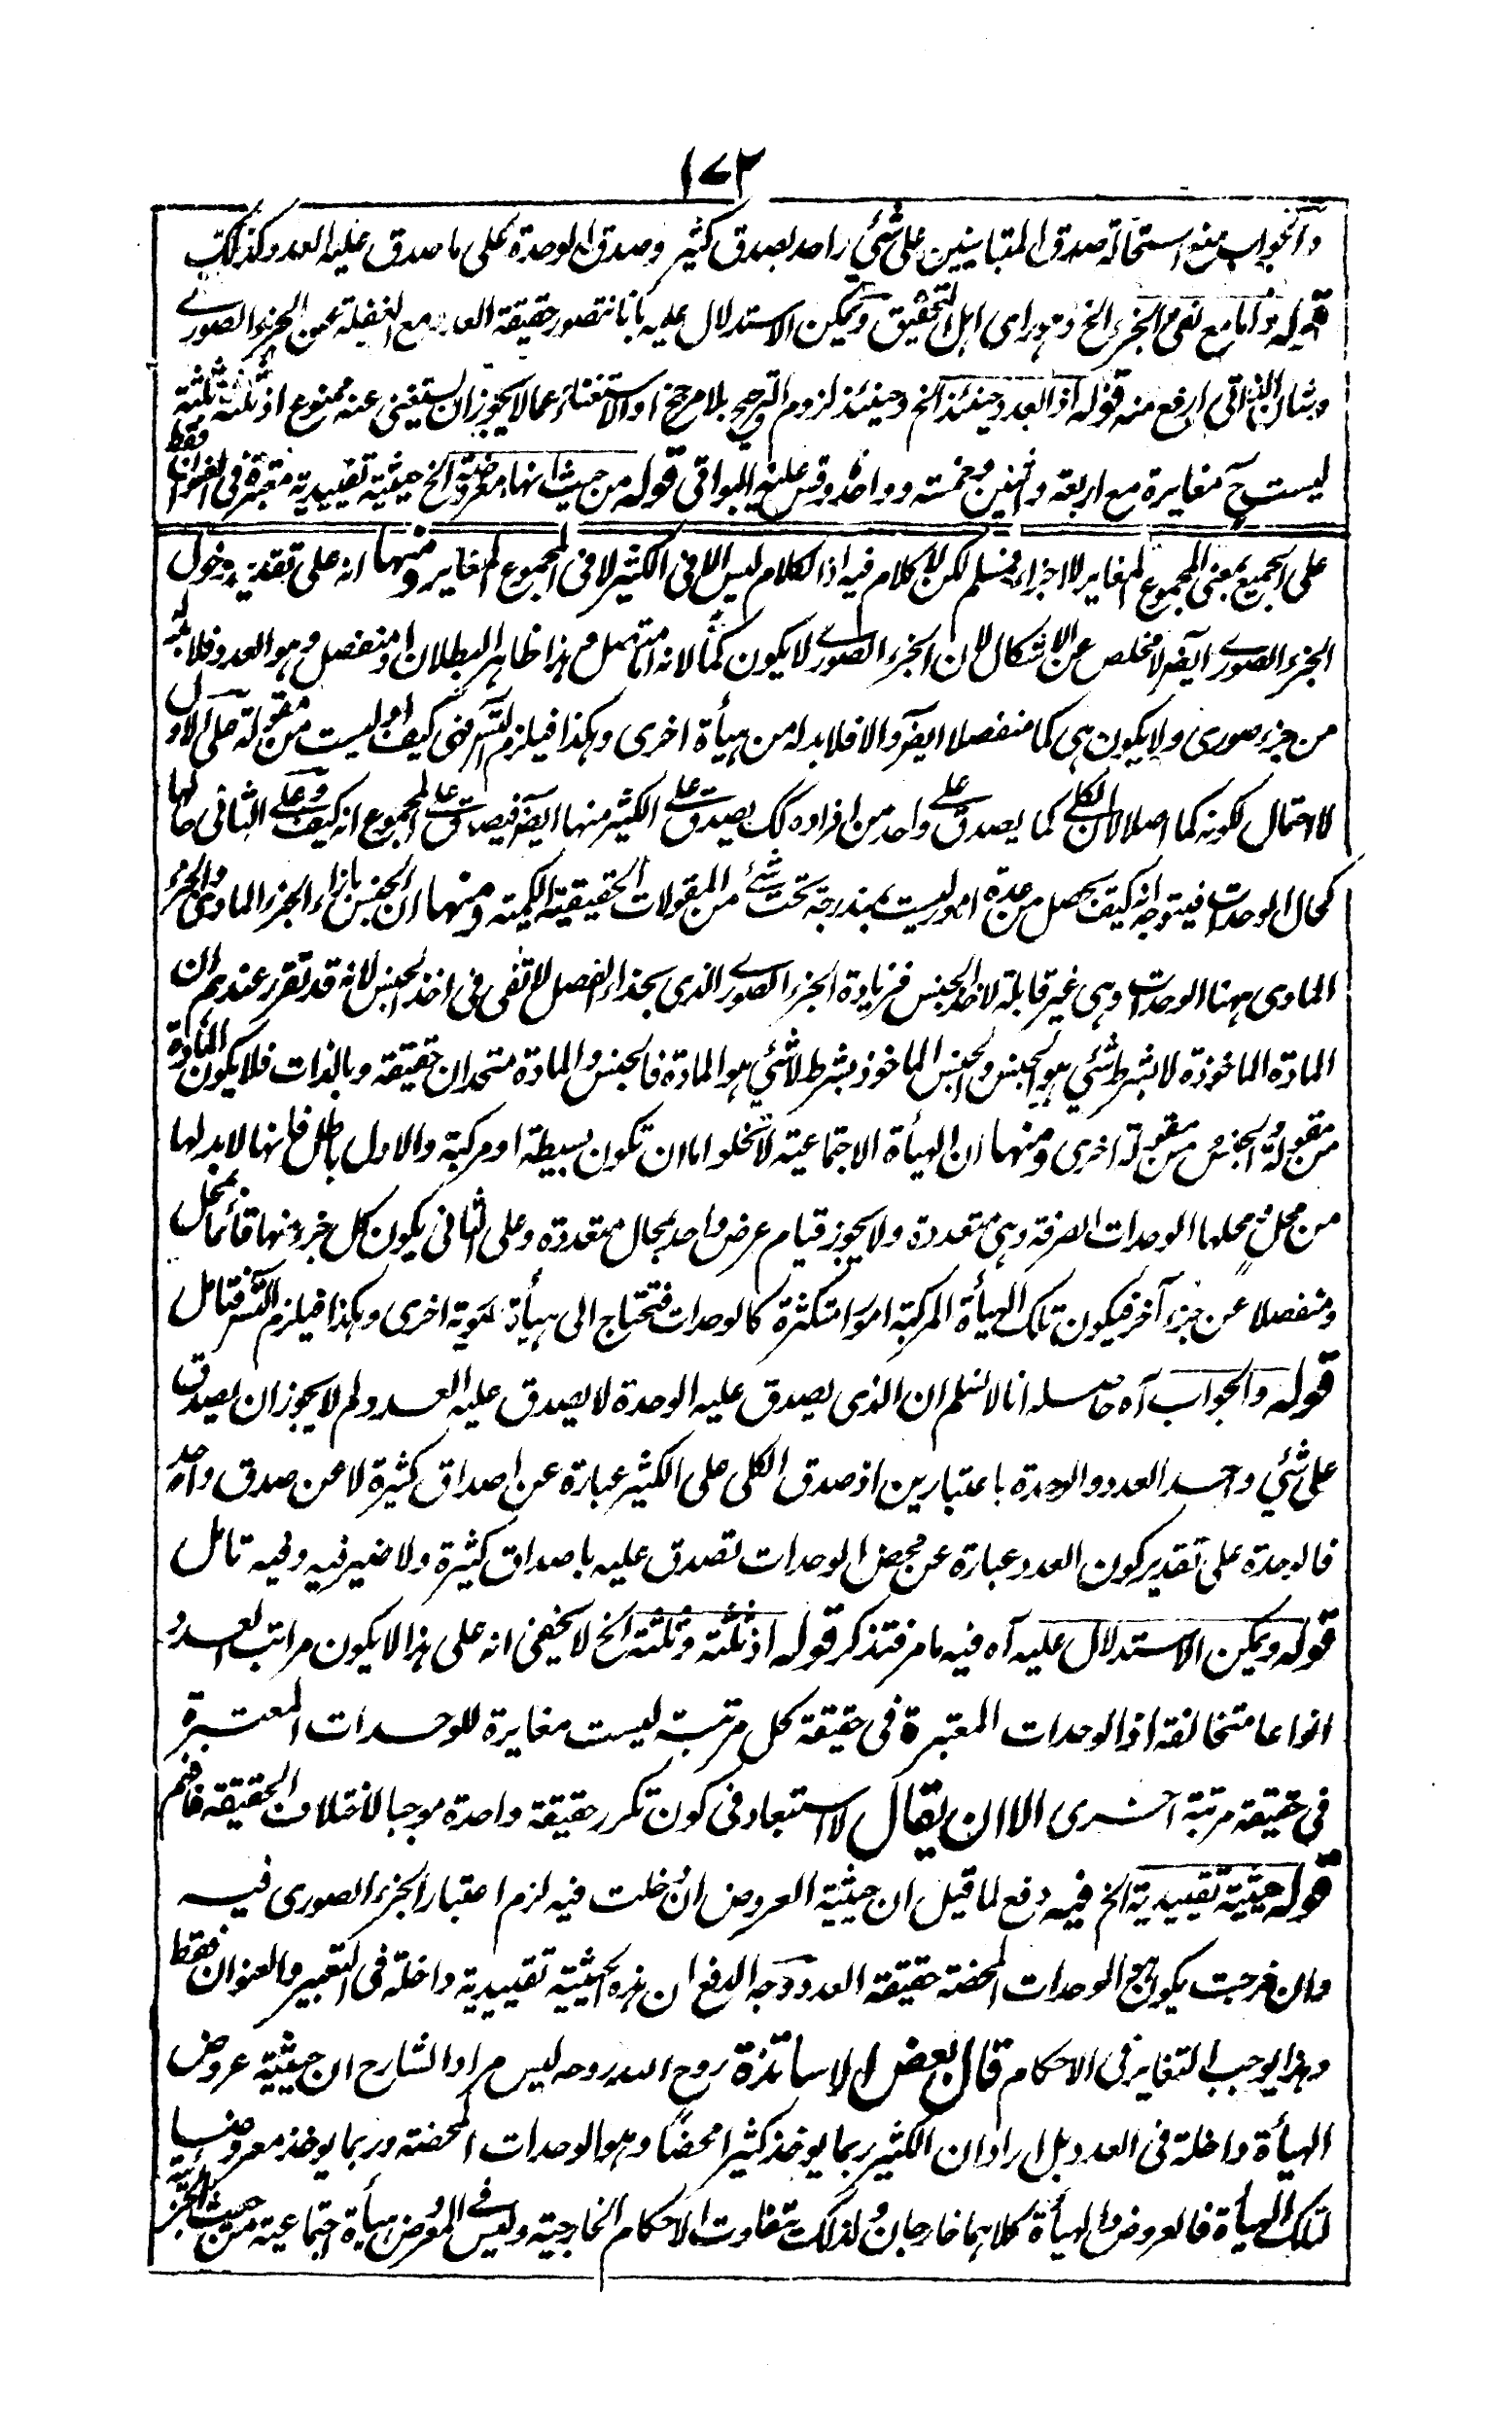 ١٧٢
والجواب منع استحالة صدق المتباينين على شئ واحد بصدق كثير وصدق الوحدة على ما صدق عليه العدد كذلك
قوله واما مع نفى الجزء الخ وهو راى اهل التحقيق ويمكن الاستدلال عليه بانا نتصور حقيقة العدد مع الغفلة عن الجزء الصورى
وشان الذاتى ارفع منه قوله اذ العدد حينئذ الخ وحينئذ لزوم الترجيح بلا مرجح او الاستغناء عما لا يجوز ان يستغنى عنه ممنوع اذ ثلثة وثلثة
ليست ح مغايرة مع اربعة واثنين وخمسة وواحد وقس عليه البواقى قوله من حيث انها معروضة الخ حيثية تقييدية معتبرة فى العنوان فقط
على الجميع بمعنى المجموع المغاير لاجزاء فمسلم لكن لا كلام فيه اذ الكلام ليس الا فى الكثير لا فى المجموع المغاير ومنها انه على تقدير دخول
الجزء الصورى ايضا لا مخلص عن الاشكال لان الجزء الصورى لا يكون كما لانه اما متصل وهذا ظاهر البطلان او منفصل وهو العدد فلا بد له
من جزء صورى ولا يكون هى كما منفصلا ايضا والا فلا بد له من هيأة اخرى وهكذا فيلزم التس فهى كيف او ليست من مقولة على الاول
لا احتمال لكونه كما اصلا لان الكلى كما يصدق على واحد من افراده كك يصدق على الكثير منها ايضا فيصدق على المجموع انه كيف وعلى الثانى حالها
كحال الوحدات فيتوجه انه كيف يحصل من عدة امور ليست بمندرجة تحت شئ من المقولات الحقيقية الكمية ومنها ان الجنس بازاء الجزء المادى والجزء
المادى ههنا الوحدات وهى غير قابلة لاخذ الجنس فزيادة الجزء الصورى الذى بحذاء الفصل لا تفى فى اخذ الجنس لانه قد تقرر عندهم ان
المادة الماخوذة لا بشرط شئ هو الجنس والجنس الماخوذ بشرط لا شئ هو المادة فالجنس والمادة متحدان حقيقة وبالذات فلا يكون المادة
من مقولة والجنس من مقولة اخرى ومنها ان الهيأة الاجتماعية لا تخلو اما ان تكون بسيطة او مركبة والاول باطل فانها لا بد لها
من محل ومحلها الوحدات الصرفة وهى متعددة ولا يجوز قيام عرض واحد بمحال متعددة وعلى الثانى يكون كل جزء منها قائما بمحل
ومنفصلا عن جزء آخر فيكون تلك الهيأة المركبة امورا متكثرة كالوحدات فتحتاج الى هيأة اخرى وهكذا فيلزم التس فتامل
قوله والجواب آه حاصله انا لا نسلم ان الذى يصدق عليه الوحدة لا يصدق عليه العدد ولم لا يجوز ان يصدق
على شئ واحد العدد والوحدة باعتبارين اذ صدق الكلى على الكثير عبارة عن اصداق كثيرة لا عن صدق واحد
فالوحدة على تقدير كون العدد عبارة عن محض الوحدات تصدق عليه باصداق كثيرة ولا ضير فيه وفيه تامل
قوله ويمكن الاستدلال عليه آه فيه ما مر فتذكر قوله اذ ثلثة وثلثة الخ لا يخفى انه على هذا لا يكون مراتب العدد
انواعا متخالفة اذ الوحدات المعتبرة فى حقيقة كل مرتبة ليست مغايرة للوحدات المعتبرة
فى حقيقة مرتبة اخرى الا ان يقال لا استبعاد فى كون تكرر حقيقة واحدة موجبا لاختلاف الحقيقة فافهم
قوله حيثية تقييدية الخ فيه دفع لما قيل ان حيثية العروض ان دخلت فيه لزم اعتبار الجزء الصورى فيه
وان خرجت يكون ح الوحدات المحضة حقيقة العدد ووجه الدفع ان هذه الحيثية تقييدية داخلة فى التعبير والعنوان فقط
وهذا يوجب التغاير فى الاحكام قال بعض الاساتذة روح الله روحه ليس مراد الشارح ان حيثية عروض
الهيأة داخلة فى العدد بل اراد ان الكثير ربما يوخذ كثيرا محضا وهو الوحدات المحضة وربما يوخذ معروضا
لتلك الهيأة فالعروض والهيأة كلاهما خارجان ولذلك تتفاوت الاحكام الخارجية وليس فى المعروض هيأة اجتماعية من حيث الجزئية